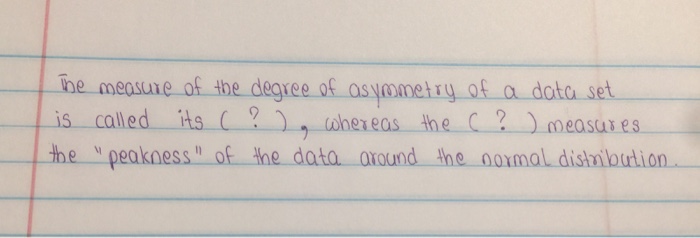 The measure of the degree of asymmetry of a data set
is called its ( ? ), whereas the ( ? ) measures
the "peakness" of the data around the normal distribution.